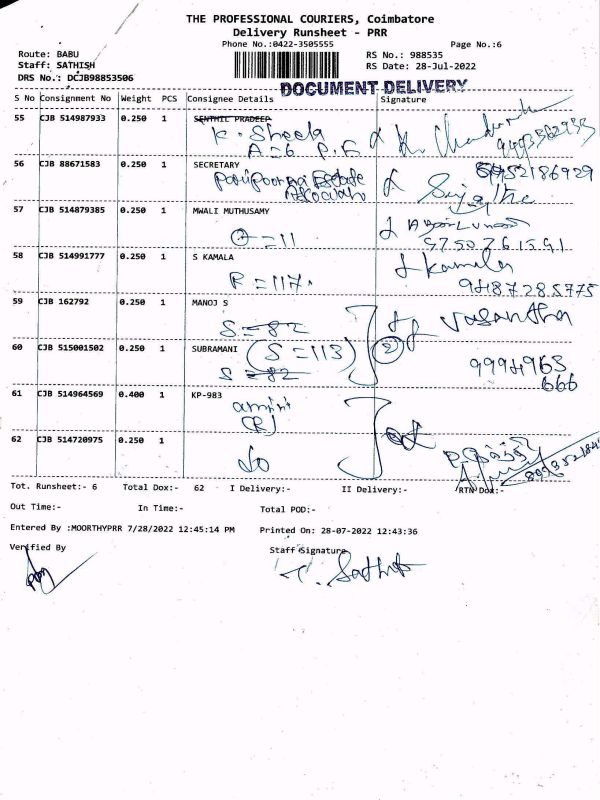 THE PROFESSIONAL COURIERS, Coimbatore
Delivery Runsheet - PRR
Phone No.:0422-3505555 Page No.:6
Route: BABU RS No.: 988535
Staff: SATHISH RS Date: 28-Jul-2022
DRS No.: DCJB98853506
DOCUMENT DELIVERY
S No Consignment No Weight PCS Consignee Details Signature
55 CJB 514987933 0.250 1 SENTHIL PRADEEP
K. Sheela
A=6 P.F
56 CJB 88671583 0.250 1 SECRETARY
Estate
57 CJB 514879385 0.250 1 MWALI MUTHUSAMY
=11 9750761591
58 CJB 514991777 0.250 1 S KAMALA kamala
R=117. 9487285775
59 CJB 162792 0.250 1 MANOJ S
S=82 vasantha
60 CJB 515001502 0.250 1 SUBRAMANI (S=113) 2
S=82 9994963
666
61 CJB 514964569 0.400 1 KP-983
62 CJB 514720975 0.250 1
Tot. Runsheet:- 6 Total Dox:- 62 I Delivery:- II Delivery:- RTN Dox:-
Out Time:- In Time:- Total POD:-
Entered By :MOORTHYPRR 7/28/2022 12:45:14 PM Printed On: 28-07-2022 12:43:36
Verified By Staff Signature